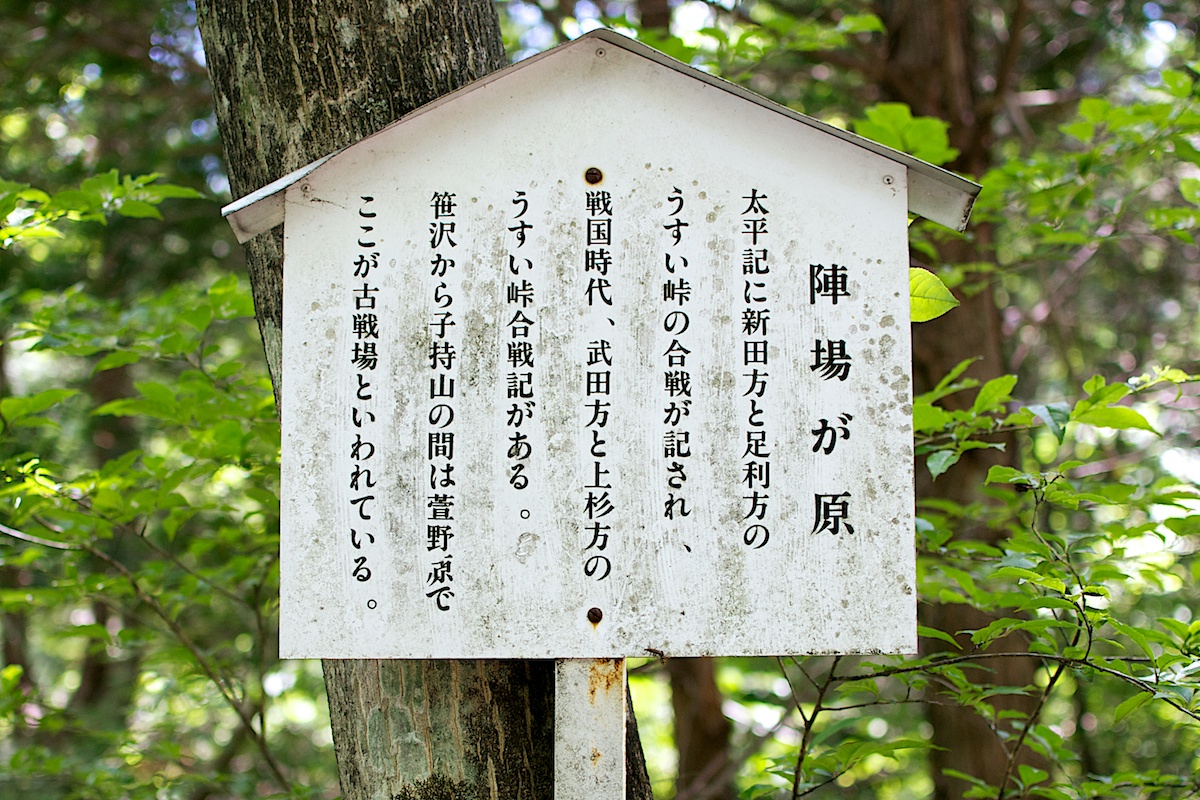 陣場が原
太平記に新田方と足利方の
うすい峠の合戦が記され、
戦国時代、武田方と上杉方の
うすい峠合戦記がある。
笹沢から子持山の間は萱野原で
ここが古戦場といわれている。